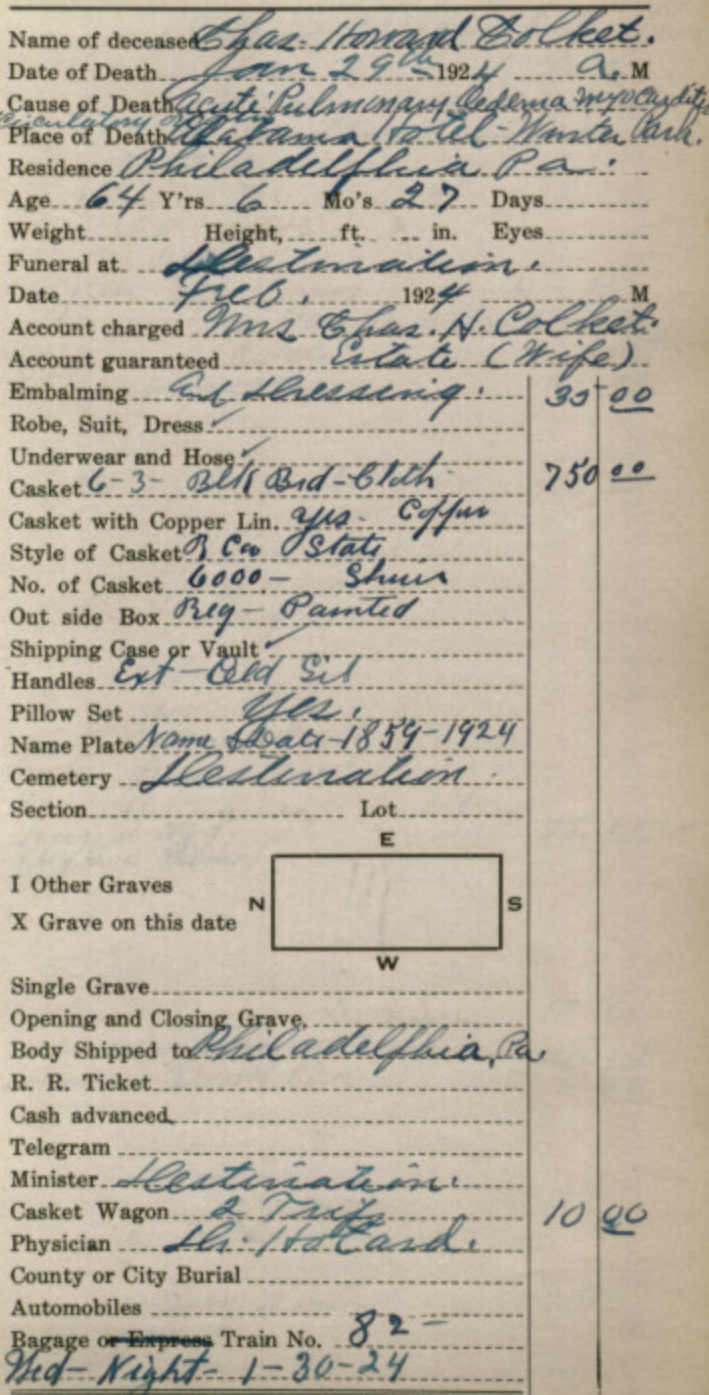 Name of deceased Chas. Howard Colket.
Date of Death Jan 29th 1924 a. M
Cause of Death acute Pulmonary Oedema myocarditis
Circulatory
Place of Death Alabama Hotel - Winter Park.
Residence Philadelphia Pa.
Age 64 Y'rs 6 Mo's 27 Days
Weight Height, ft. in. Eyes
Funeral at Destination.
Date Feb. 1924 M
Account charged Mrs Chas. H. Colket.
Account guaranteed Estate (Wife)
Embalming and dressing. 35 00
Robe, Suit, Dress
Underwear and Hose
Casket 6-3- Blk Brd-Cloth 750 00
Casket with Copper Lin. yes - Copper
Style of Casket State
No. of Casket 6000 -
Out side Box Reg - Painted
Shipping Case or Vault
Handles Ext - Sil
Pillow Set Yes.
Name Plate Name & Date - 1859-1924
Cemetery Destination.
Section Lot
E
I Other Graves
N S
X Grave on this date
W
Single Grave
Opening and Closing Grave,
Body Shipped to Philadelphia, Pa.
R. R. Ticket
Cash advanced
Telegram
Minister Destination.
Casket Wagon 2 Trips 10 00
Physician Dr.
County or City Burial
Automobiles
Bagage or Express Train No. 82 -
Wed - Night - 1-30-24